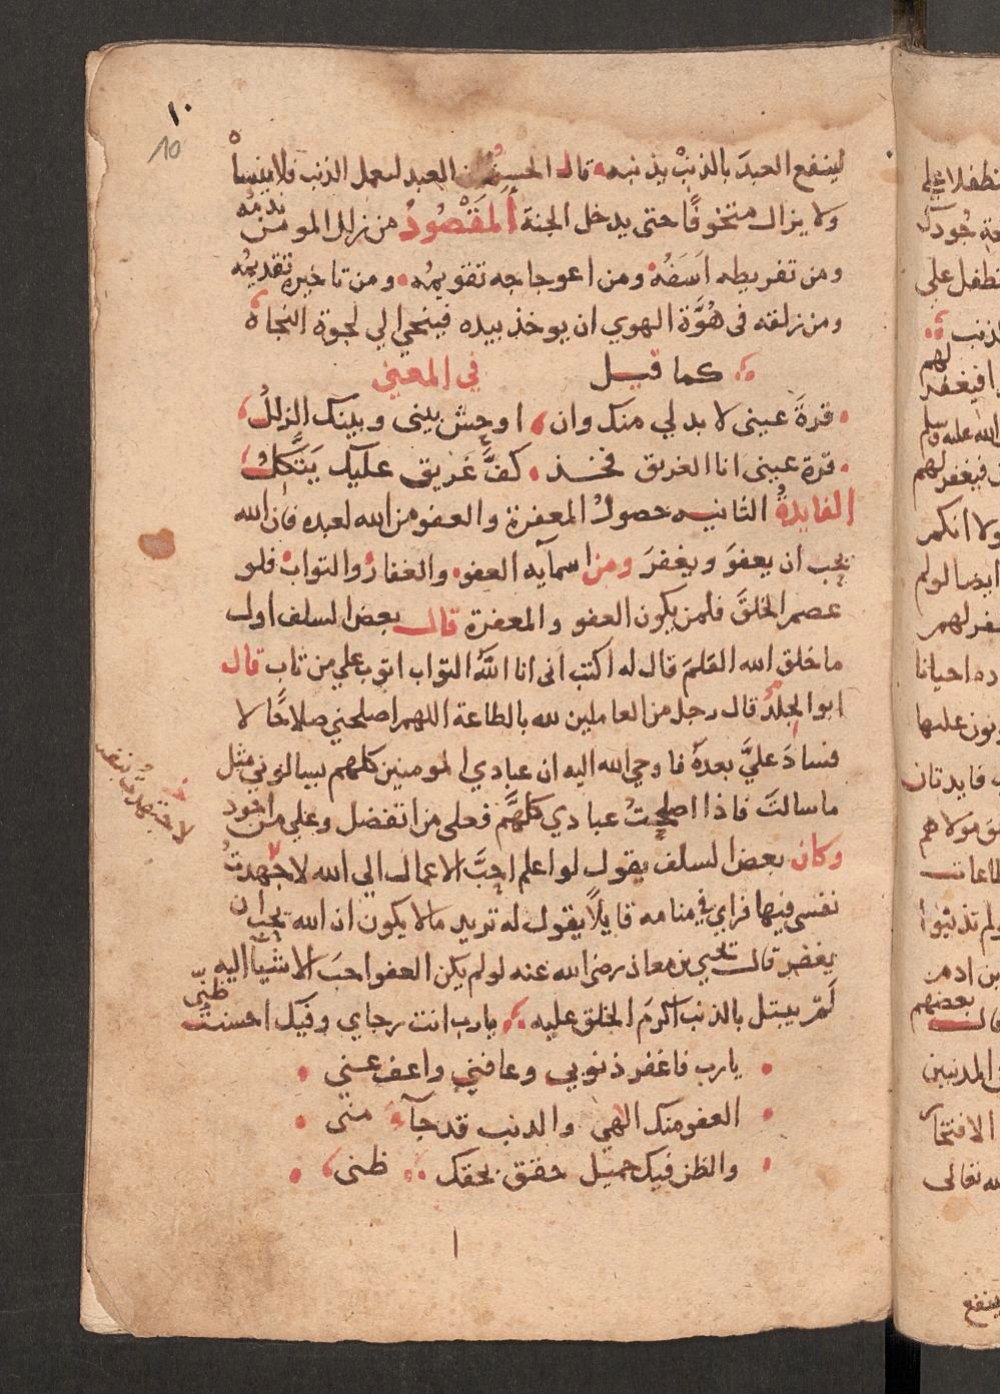 ١٠
10
لينفع العبدَ بالذنبْ يذنبه قال الحسنُ ان العبد ليعمل الذنب فلا ينساهُ
ولا يزال متخوفًا حتى يدخل الجنة اَلمَقْصُودُ من زلل المومن ندمُه
ومن تفريطه اَسَفُهُ ومن اعوجاجه تقويمُه ومن تاخيره تقديمُه
ومن زلقته فى هُوَّة الهوي ان يوخذ بيده فينجي الي نجوة النجاة
كما قيل في المعني
قرةَ عينى لا بد لي منك وان اوحش بينى وبينك الزللُ
قرة عينى انا الغريق فخذ كفَّ غريق عليك يَتَّكلُ
الفايدةُ الثانيه حصولُ المغفرة والعفو من الله لعبده فان الله
يحب ان يعفوَ ويغفرَ ومن اسمآيه العفو والغفارُ والتوابُ فلو
عصم الخلقَ فلمن يكون العفو والمغفرة قال بعض السلف اول
ما خلق الله القلمَ قال له اكتب انى انا اللهُ التواب اتوب علي من تاب قال
ابو الجلدْ قال رجل من العاملين لله بالطاعة اللهم اصلحني صلاحًا لا
فسادَ عليَّ بعدهُ فاوحي الله اليه ان عبادي المومنين كلهم يسالوني مثل
ما سالتَ فاذا اصلحتُ عبادي كلهَّم فعلى من اتفضل وعلي من اجود
وكان بعض السلف يقول لو اعلم احبَّ الاعمال الي الله لاجهدتُ
نفسى فيها فراي في منامه قايلًا يقول له تريد ما لا يكون ان الله يحب ان
يغفر قال يحيي بن معاذ رضي الله عنه لو لم يكن العفو احبَ الاشيآ اليه
لَمْ يبتل بالذنب اكرمَ الخلق عليه يارب انت رجاي وفيك احسنتُ ظنّى
يارب فاغفر ذنوبي وعافني واعف عني
العفو منك الهي والذنب قد جآء منى
والظن فيك جميل حقق بحقك ظنى